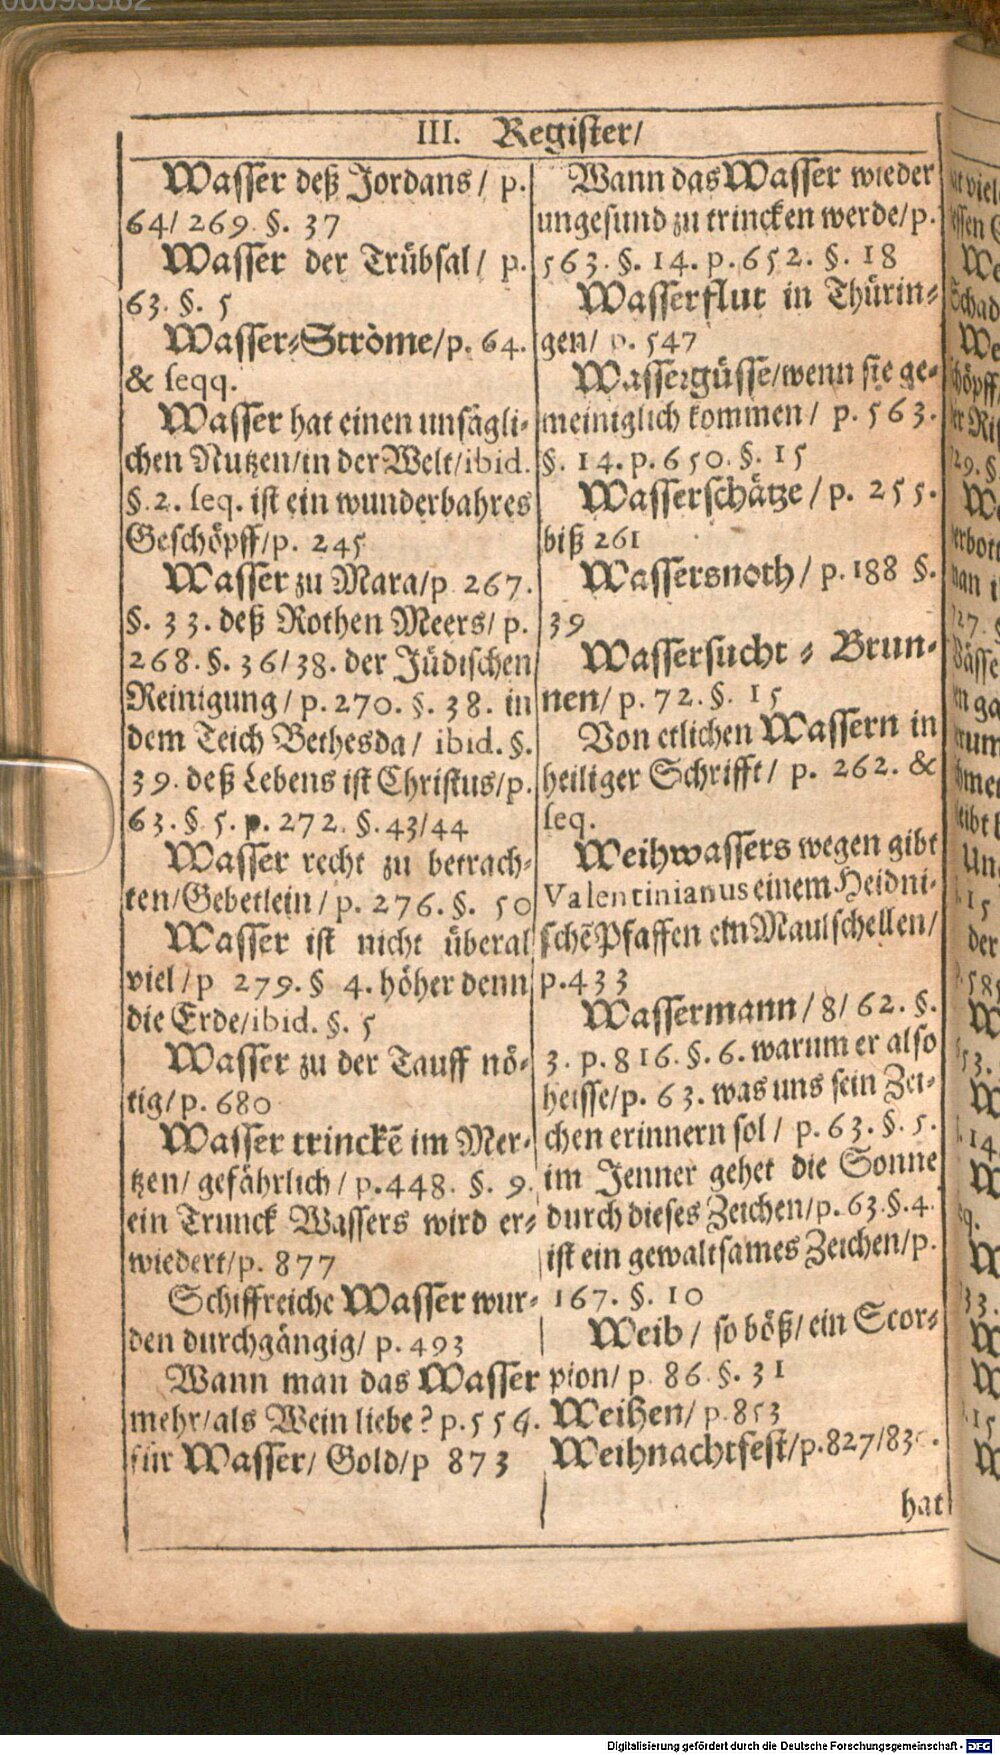 III. Register/
Wasser deß Jordans / p.
64/ 269. §. 37
Wasser der Trübsal/ p.
63. §. 5
Wasser-Ströme/p. 64.
& seqq.
Wasser hat einen unsägli-
chen Nutzen/in der Welt/ibid.
§. 2. seq. ist ein wunderbahres
Geschöpff/p. 245
Wasser zu Mara/p 267.
§. 33. deß Rothen Meers/ p.
268. §. 36/38. der Jüdischen
Reinigung / p. 270. §. 38. in
dem Teich Bethesda/ ibid. §.
39. deß Lebens ist Christus/p.
63. § 5. p. 272. §. 43/44
Wasser recht zu betrach-
ten/Gebetlein / p. 276. §. 50
Wasser ist nicht überal
viel / p 279. § 4. höher denn
die Erde/ibid. §. 5
Wasser zu der Tauff nö-
tig/ p. 680
Wasser trinckẽ im Mer-
tzen/ gefährlich / p. 448. §. 9.
ein Trunck Wassers wird er-
wiedert/p. 877
Schiffreiche Wasser wur-
den durchgängig/ p. 493
Wann man das Wasser
mehr/als Wein liebe? p. 556.
für Wasser/ Gold/p 873
Wann das Wasser wieder
ungesund zu trincken werde/p.
563. §. 14. p. 652. §. 18
Wasserflut in Thürin-
gen/ p. 547
Wassergüsse/wenn sie ge-
meiniglich kommen / p. 563.
§. 14. p. 650. §. 15
Wasserschätze / p. 255.
biß 261
Wassersnoth / p. 188 §.
39
Wassersucht - Brun-
nen/ p. 72. §. 15
Von etlichen Wassern in
heiliger Schrifft/ p. 262. &
seq.
Weihwassers wegen gibt
Valentinianus einem Heidni-
schẽ Pfaffen ein Maulschellen/
p. 433
Wassermann / 8/ 62. §.
3. p. 816. §. 6. warum er also
heisse/p. 63. was uns sein Zei-
chen erinnern sol / p. 63. §. 5.
im Jenner gehet die Sonne
durch dieses Zeichen/p. 63. §. 4.
ist ein gewaltsames Zeichen/p.
167. §. 10
Weib / so böß/ ein Scor-
pion/ p. 86. §. 31
Weihen/ p. 853
Weihnachtfest/p. 827/
hat
Digitalisierung gefördert durch die Deutsche Forschungsgemeinschaft - DFG